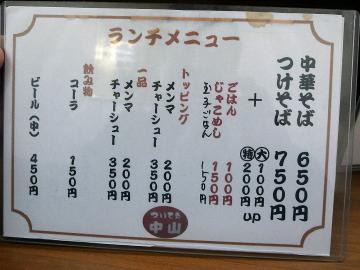 ランチメニュー
中華そば 650円
つけそば 750円
+
大 100円up
特 200円up
ごはん 100円
じゃこめし 150円
玉子ごはん 150円
トッピング
メンマ 200円
チャーシュー 350円
一品
メンマ 200円
チャーシュー 350円
飲み物
コーラ 150円
ビール(中) 450円
中山